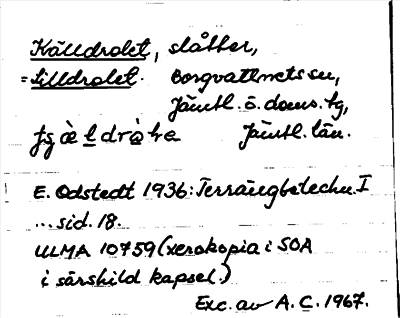 Källdrolet, slåtter,
= Silldrolet. Borgvattnets sn,
Jämtl. ö. doms. tg,
Jämtl. län.
E. Odstedt 1936: Terrängbetechn. I
... sid. 18.
ULMA 10759 (xerokopia i SOA
i särskild kapsel.)
Exc. av A. C. 1967.